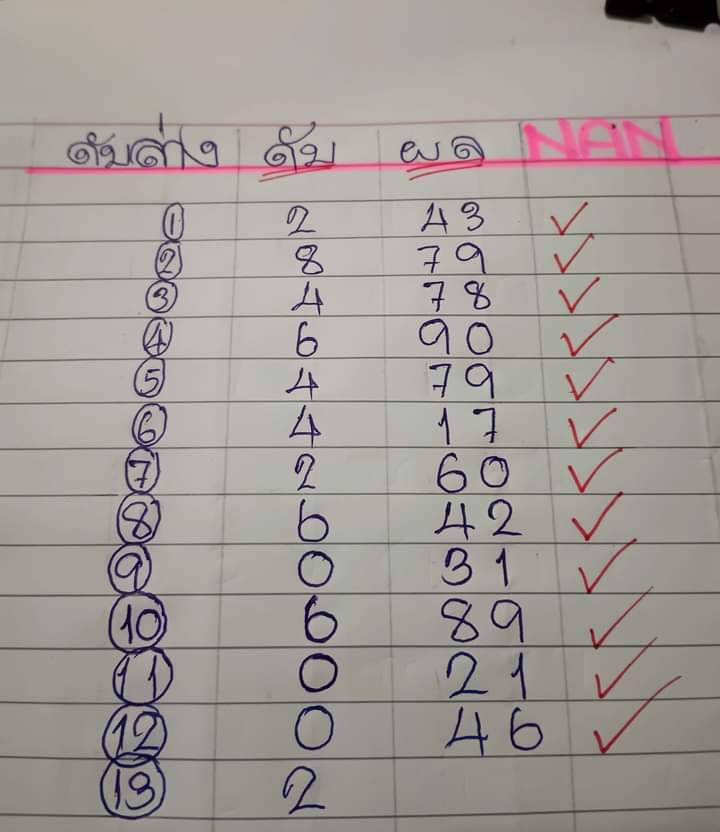 ดับล่าง ดับ ผล NAN
1 2 43 ✓
2 8 79 ✓
3 4 78 ✓
4 6 90 ✓
5 4 79 ✓
6 4 17 ✓
7 2 60 ✓
8 6 42 ✓
9 0 31 ✓
10 6 89 ✓
11 0 21 ✓
12 0 46 ✓
13 2